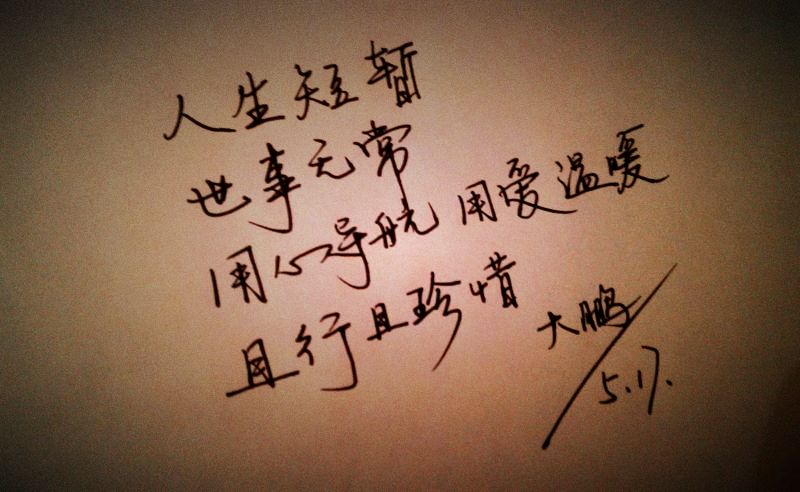 人生短暂
世事无常
用心导航 用爱温暖
且行且珍惜
大鹏
5.17.